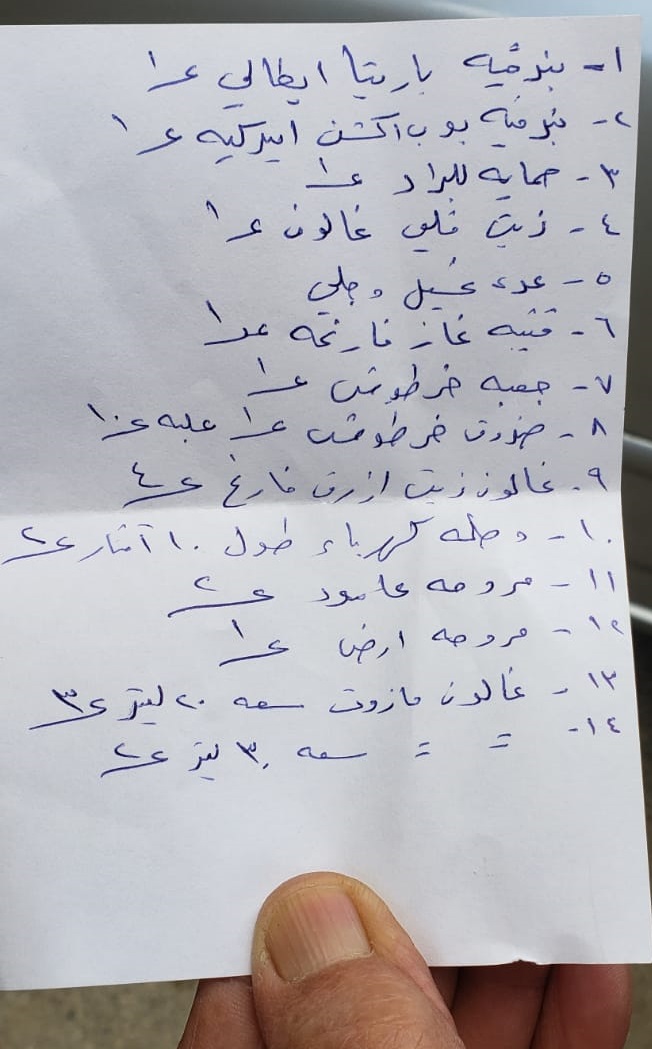 ١- بندقيه باريتا ايطالي عدد ١
٢- بندقيه بوب اكشن اميركيه عدد ١
٣- حمايه للبراد عدد ١
٤- زيت قلي غالون عدد ١
٥- عدد غسيل وجلي
٦- قنينه غاز فارغه عدد ١
٧- جعبه خرطوش عدد ١
٨- صندوق خرطوش عدد ١ علبه عدد ١٠
٩- غالون زيت ازرق فارغ عدد ٤
١٠- وصله كهرباء طول ١٠ أمتار عدد ٢
١١- مروحه عامود عدد ٢
١٢- مروحه ارض عدد ١
١٣- غالون مازوت سعه ٢٠ ليتر عدد ٣
١٤- = = سعه ٣٠ ليتر عدد ٢